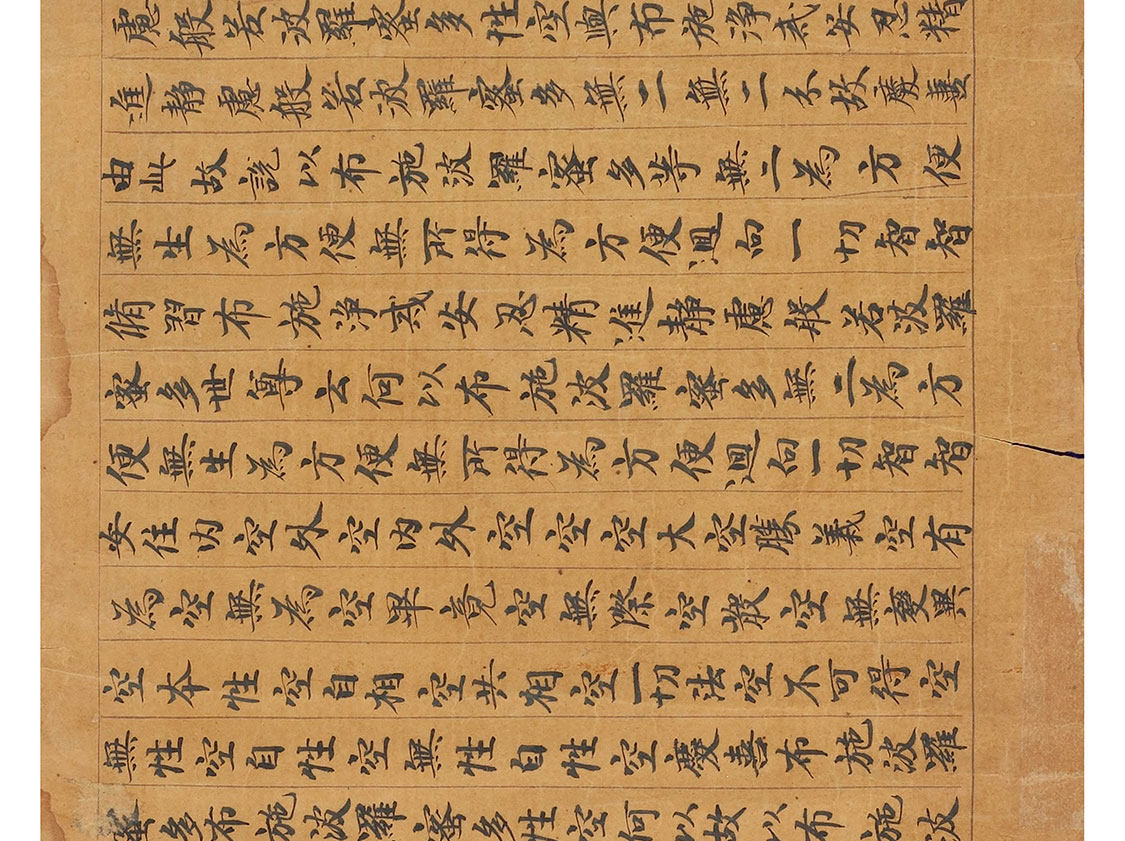 慮般若波羅蜜多性空與布施淨戒安忍精
進靜慮般若波羅蜜多無二無二分故慶喜
由此故說以布施波羅蜜多等無二為方便
無生為方便無所得為方便迴向一切智智
脩習布施淨戒安忍精進靜慮般若波羅
蜜多世尊云何以布施波羅蜜多無二為方
便無生為方便無所得為方便迴向一切智智
安住內空外空內外空空空大空勝義空有
為空無為空畢竟空無際空散空無變異
空本性空自相空共相空一切法空不可得空
無性空自性空無性自性空慶喜布施波羅
蜜多布施波羅蜜多性空何以故以布施波